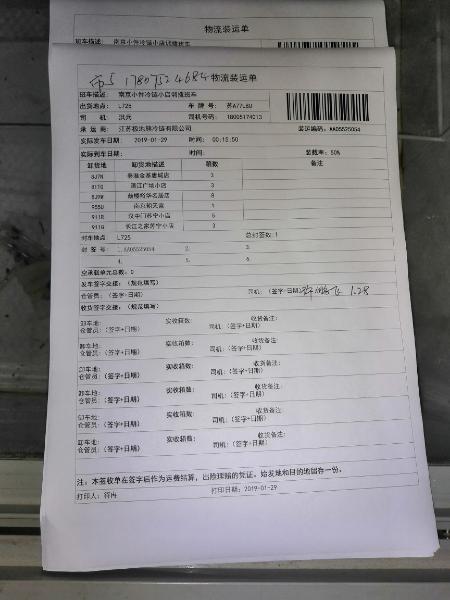 物流装运单
南京小件冷链小店调拨班车
17807524684 物流装运单
班车描述: 南京小件冷链小店调拨班车
出货地点: L725 车 牌 号: 苏A77L8U
司 机: 洪兵 司机号码: 18005174013
承 运 商: 江苏极地熊冷链有限公司 装运编码: AA05525054
实际发车日期: 2019-01-29 时间: 00:15:50
实际到车日期: 时间: 装载率: 50%
卸货地 卸货地描述 箱数 备注
3
滨江广场小店 3
8
1
911R 汉中门苏宁小店 5
长江之家苏宁小店 3
封车地点 L725 总封签数: 1
封 签 号: 1. AA05525054 2. 3.
4. 5. 6.
空承载单元总数: 0
发车签字交接: (规范填写)
仓管员: (签字+日期) 司机: (签字+日期) 1.28
收货签字交接: (规范填写)
卸车地: 实收箱数: 收货备注:
仓管员: (签字+日期) 司机: (签字+日期)
卸车地: 实收箱数: 收货备注:
仓管员: (签字+日期) 司机: (签字+日期)
卸车地: 实收箱数: 收货备注:
仓管员: (签字+日期) 司机: (签字+日期)
卸车地: 实收箱数: 收货备注:
仓管员: (签字+日期) 司机: (签字+日期)
卸车地: 实收箱数: 收货备注:
仓管员: (签字+日期) 司机: (签字+日期)
卸车地: 实收箱数: 收货备注:
仓管员: (签字+日期) 司机: (签字+日期)
注: 本签收单在签字后作为运费结算, 出险理赔的凭证。始发地和目的地留存一份。
打印人: 符冉 打印日期: 2019-01-29